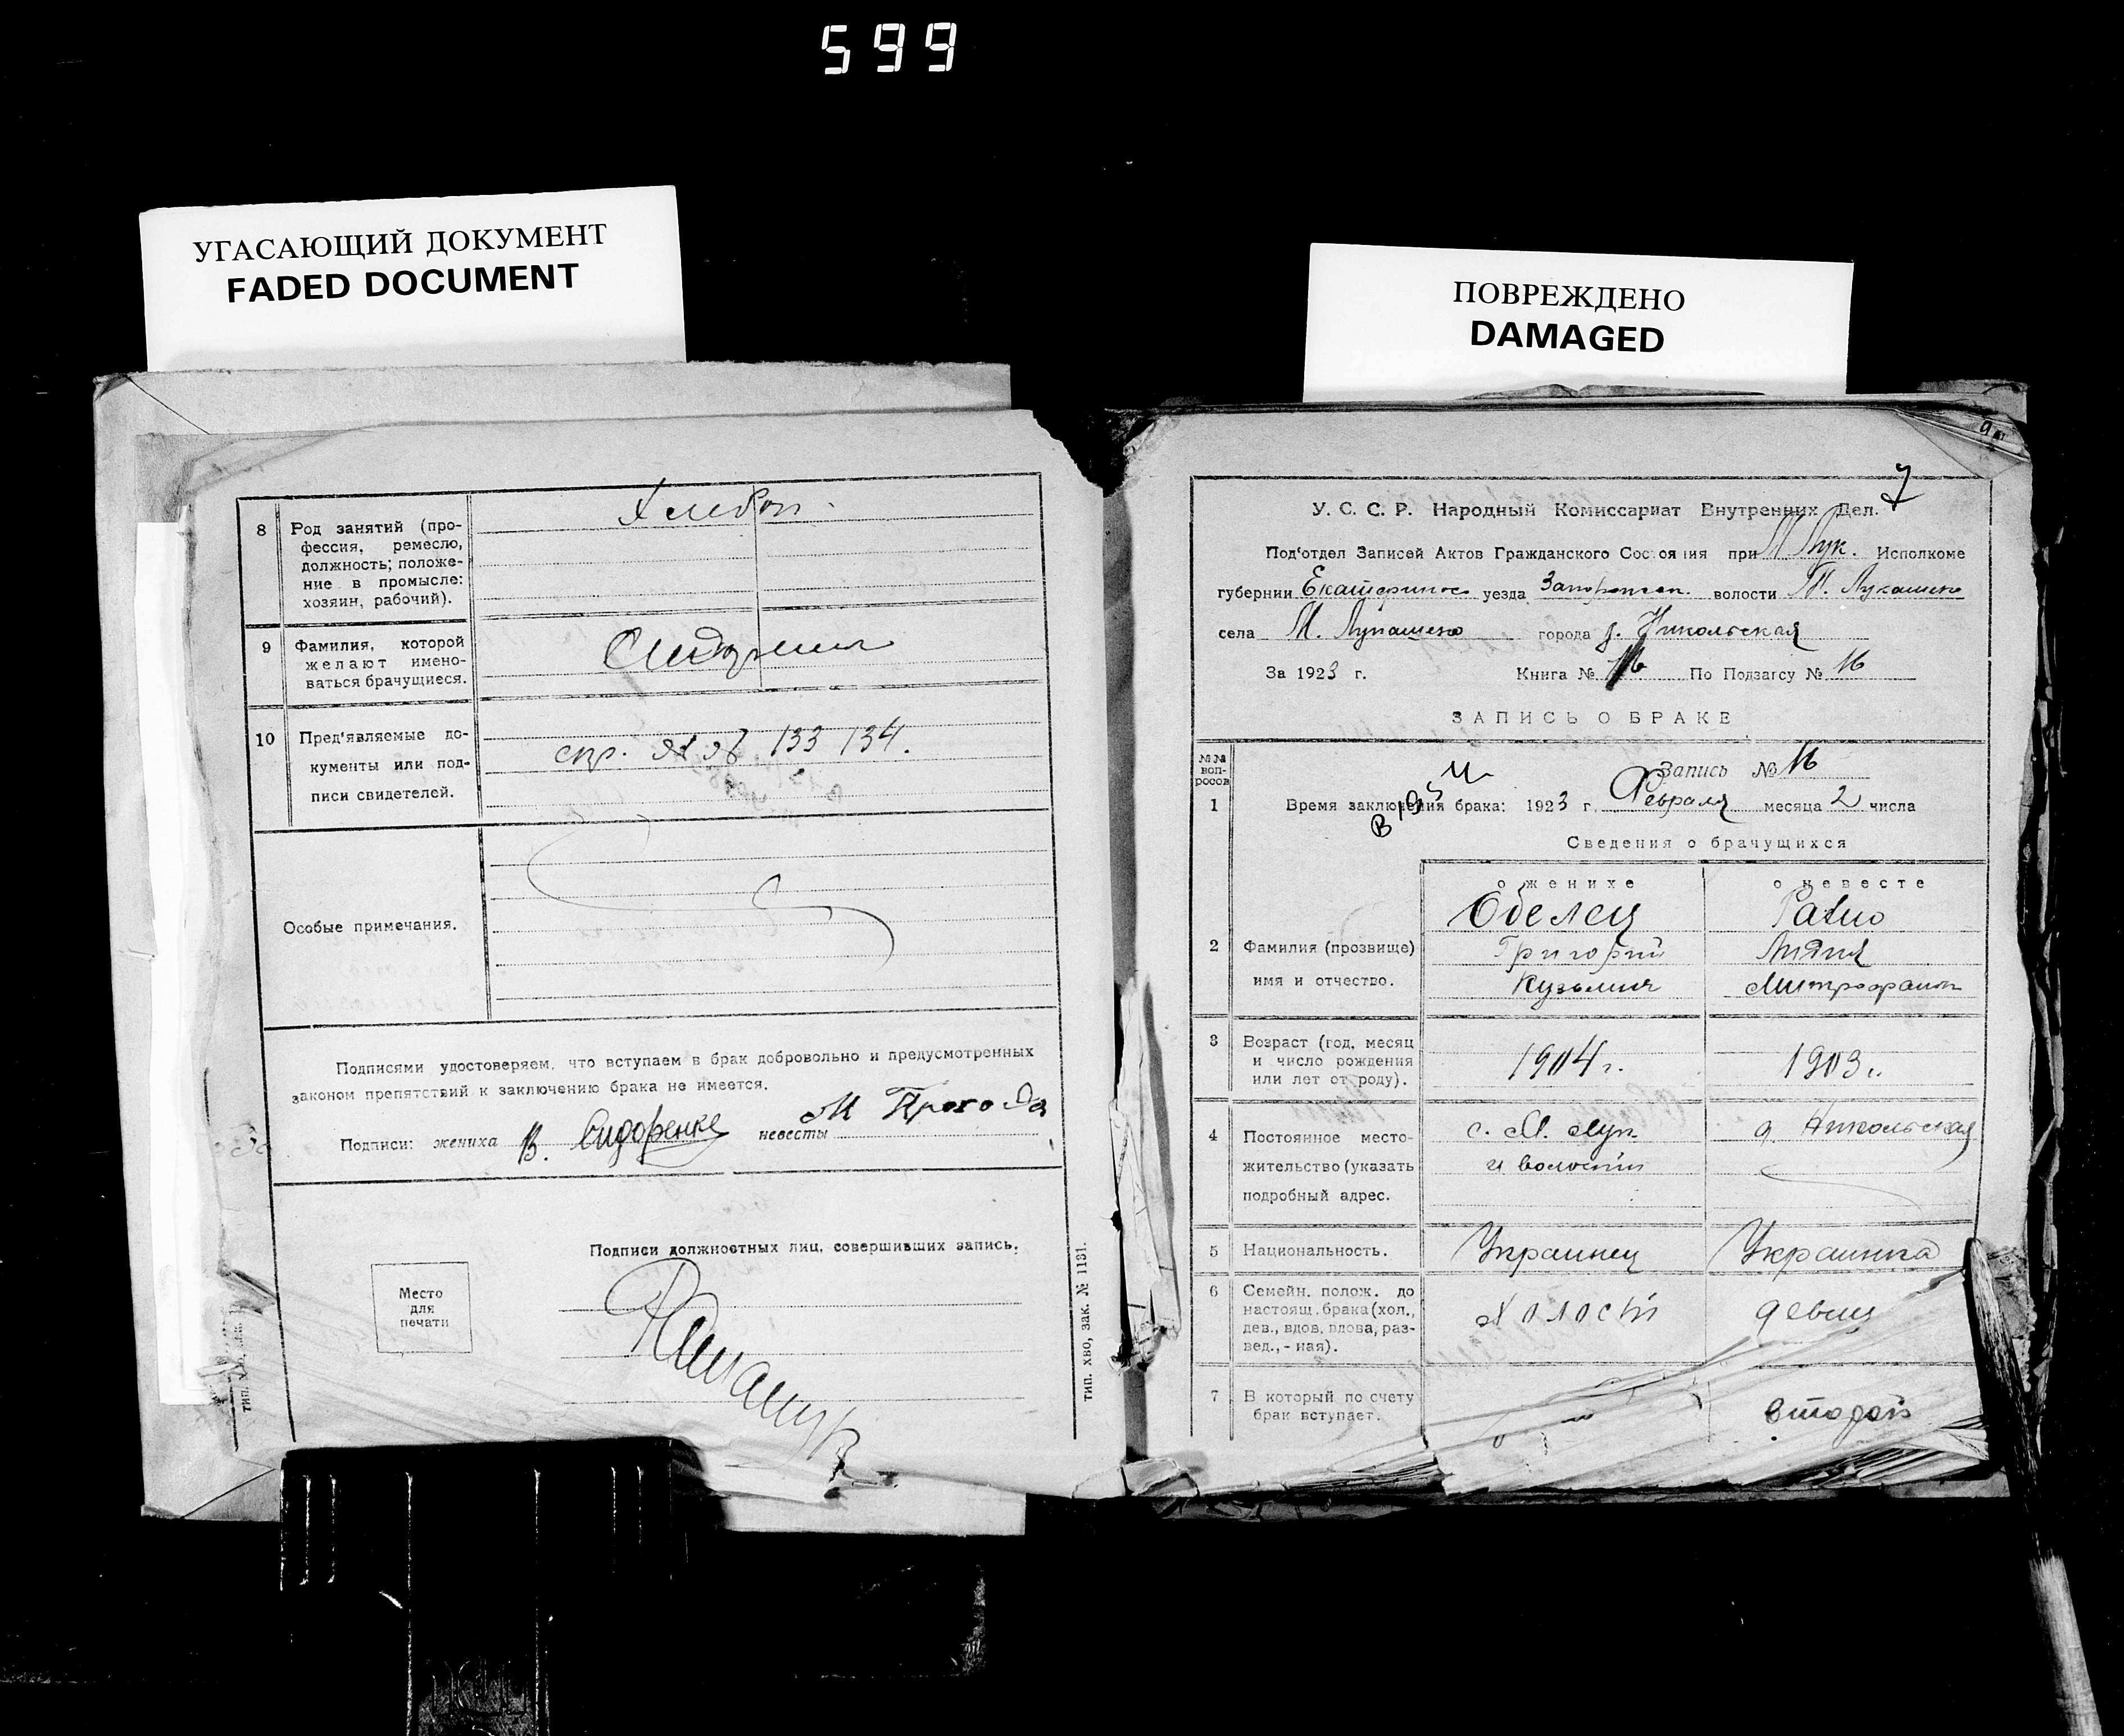 599
УГАСАЮЩИЙ ДОКУМЕНТ
FADED DOCUMENT
ПОВРЕЖДЕНО
DAMAGED
8 Род занятий (про-
фессия, ремесло,
должность; положе-
ние в промысле:
хозяин, рабочий).
9 Фамилия, которой
желают имено-
ваться брачущиеся.
10 Пред'являемые до-
кументы или под-
писи свидетелей.
133 134.
Особые примечания.
Подписями удостоверяем, что вступаем в брак добровольно и предусмотренных
законом препятствий к заключению брака не имеется.
Подписи: жениха В. Сидоренке невесты М Прохода
Подписи должностных лиц, совершивших запись.
Место
для
печати
тип. хво, зак. № 1131.
7
У. С. С. Р. Народный Комиссариат Внутренних Дел.
Под'отдел Записей Актов Гражданского Состояния при М Лук. Исполкоме
губернии Екатеринос уезда волости М. Лукашево
села М. Лукашево города д. Никольская
За 1923 г. Книга № 16 По Подзагсу № 16
ЗАПИСЬ О БРАКЕ
№№
воп-
росов
Запись № 16
1 Время заключения брака: 1923 г. Февраля месяца 2 числа
Сведения о брачущихся
о женихе о невесте
2 Фамилия (прозвище)
имя и отчество.
Григорий
Кузьмич Митрофанов
3 Возраст (год, месяц
и число рождения
или лет от роду).
1904 г. 1903 г.
4 Постоянное место-
жительство (указать
подробный адрес.
с. М. Лук. д. Никольская
и волости
5 Национальность. Украинец Украинка
6 Семейн. полож. до
настоящ. брака (хол.,
дев., вдов, вдова, раз-
вед., - ная).
Холостй девиц
7 В который по счету
брак вступает.
второй